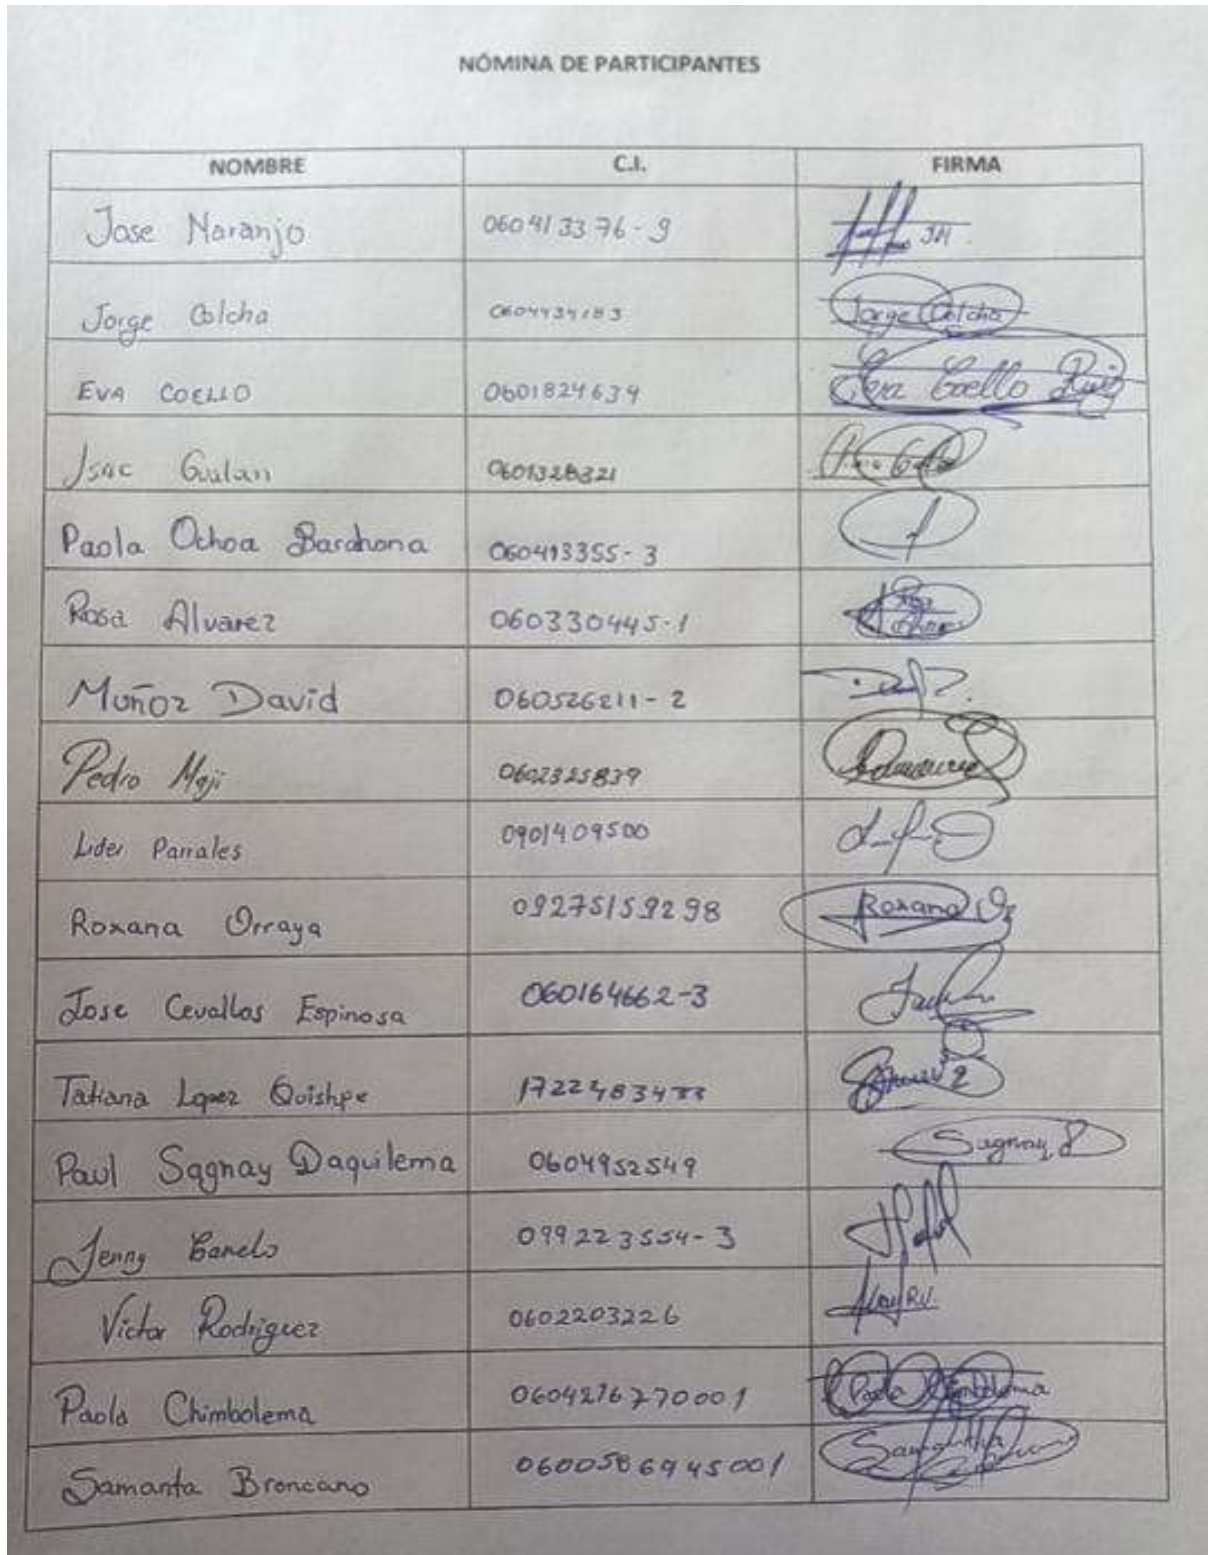 NÓMINA DE PARTICIPANTES
NOMBRE C.I. FIRMA
Jose Naranjo 060413376-9 JN.
Jorge Colcha 0604434183 Jorge Colcha
EVA COELLO 0601824634 Eva Coello Ruiz
Isac Gualan 0601328321
Paola Ochoa Barahona 060413355-3
Rosa Alvarez 060330445-1 Rosa
Muñoz David 060526211-2
Pedro Maji 0602325839
Lider Parrales 0901409500
Roxana Orraya 09275159298 Roxana
Jose Cevallos Espinosa 060164662-3
Tatiana Lopez Quishpe
Paul Sagnay Daquilema 0604952549 Sagnay P
Jenny 099223554-3
Victor Rodriguez 0602203226
Paola Chimbolema 0604216270001 Paola Chimbolema
Samanta Broncano 0600586945001 Samantha